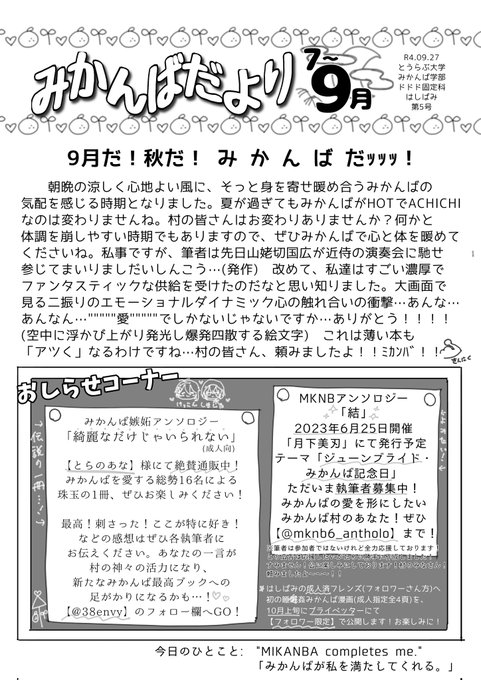 みかんばだより
7〜9月
R4.09.27
とうらぶ大学
みかんば学部
ドドド固定科
はしばみ
第5号
9月だ！秋だ！ みかんば だｯｯｯ！
朝晩の涼しく心地よい風に、そっと身を寄せ暖め合うみかんばの
気配を感じる時期となりました。夏が過ぎてもみかんばがHOTでACHICHI
なのは変わりませんね。村の皆さんはお変わりありませんか？何かと
体調を崩しやすい時期でもありますので、ぜひみかんばで心と体を暖めて
くださいね。私事ですが、筆者は先日山姥切国広が近侍の演奏会に馳せ
参じてまいりましだいしんこう…(発作)　改めて、私達はすごい濃厚で
ファンタスティックな供給を受けたのだなと思い知りました。大画面で
見る二振りのエモーショナルダイナミック心の触れ合いの衝撃…あんな…
あんなん…"""""愛"""""でしかないじゃないですか…ありがとう！！！！
(空中に浮かび上がり発光し爆発四散する絵文字)　これは薄い本も
「アツく」なるわけですね…村の皆さん、頼みましたよ！！ﾐｶﾝﾊﾞ！！
おしらせコーナー
みかんば嫉妬アンソロジー
「綺麗なだけじゃいられない」
(成人向)
【とらのあな】様にて絶賛通販中！
みかんばを愛する総勢16名による
珠玉の1冊、ぜひお楽しみください！
最高！刺さった！ここが特に好き！
などの感想はぜひ各執筆者に
お伝えください。あなたの一言が
村の神々の活力になり、
新たなみかんば最高ブックへの
足がかりになるかも…！♡
【@38envy】のフォロー欄へGO！
MKNBアンソロジー
「結」
2023年6月25日開催
「月下美刃」にて発行予定
テーマ「ジューンブライド・
みかんば記念日」
ただいま執筆者募集中！
みかんばの愛を形にしたい
みかんば村のあなた！ぜひ
【@mknb6_antholo】まで！
※筆者は参加者ではないけれど全力応援しております
はしばみの成人済フレンズ(フォロワーさん方)へ
初の睡姦みかんば漫画(成人指定全4頁)を、
10月上旬にプライベッターにて
【フォロワー限定】で公開します！お楽しみに！
今日のひとこと: "MIKANBA completes me."
「みかんばが私を満たしてくれる。」